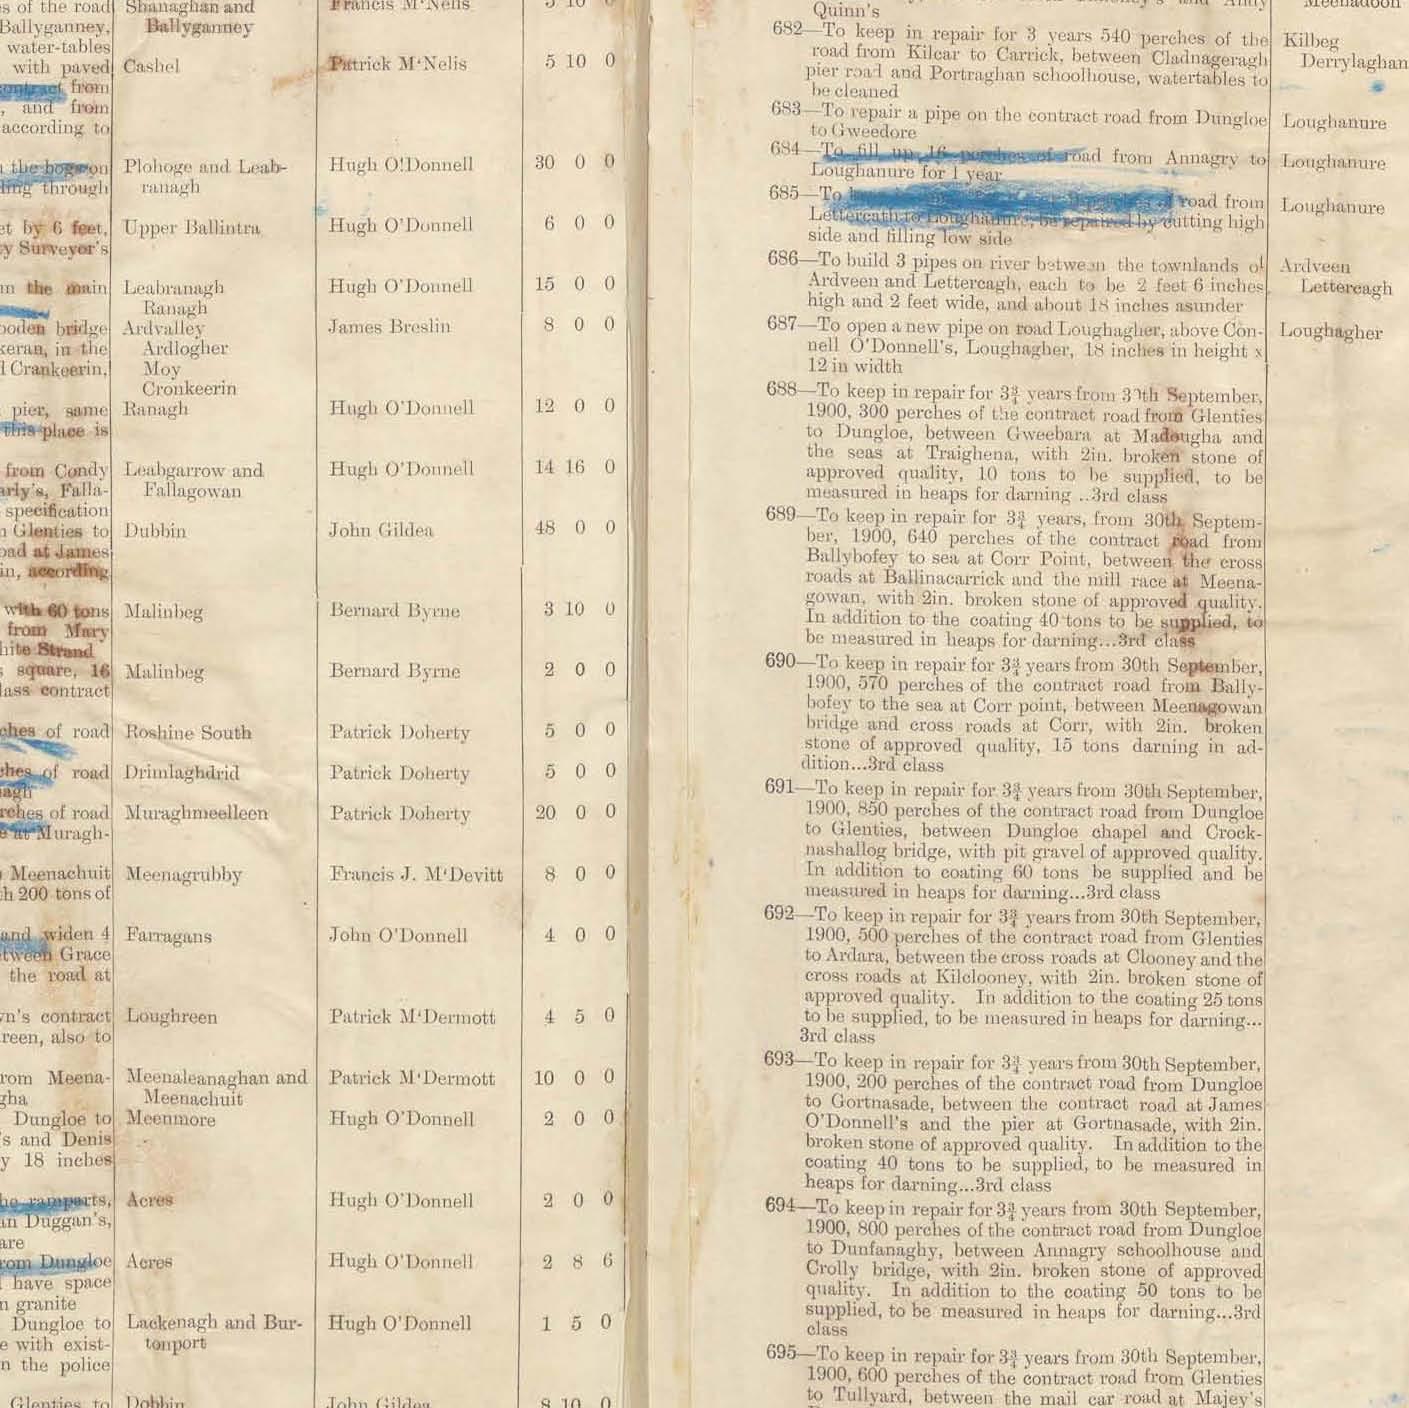 s of the road Shanaghan and Francis M'Nelis 5 10 0
Ballyganney, Ballyganney
water-tables
with paved Cashel Patrick M'Nelis 5 10 0
contract from
, and from
according to
the bogs on Plohoge and Leab- Hugh O'Donnell 30 0 0
through ranagh
et by 6 feet, Upper Ballintra Hugh O'Donnell 6 0 0
y Surveyor's
m the main Leabranagh Hugh O'Donnell 15 0 0
Ranagh
ooden bridge Ardvalley James Breslin 8 0 0
keran, in the Ardlogher
l Crankeerin, Moy
Cronkeerin
pier, same Ranagh Hugh O'Donnell 12 0 0
this place is
from Condy Leabgarrow and Hugh O'Donnell 14 16 0
arly's, Falla- Fallagowan
specification
n Glenties to Dubbin John Gildea 48 0 0
oad at James
in, according
with 60 tons Malinbeg Bernard Byrne 3 10 0
from Mary
hite Strand
s square, 16 Malinbeg Bernard Byrne 2 0 0
lass contract
ches of road Roshine South Patrick Doherty 5 0 0
ches of road Drimlaghdrid Patrick Doherty 5 0 0
nagh
rches of road Muraghmeelleen Patrick Doherty 20 0 0
e at Muragh-
Meenachuit Meenagrubby Francis J. M'Devitt 8 0 0
h 200 tons of
and widen 4 Farragans John O'Donnell 4 0 0
tween Grace
the road at
vn's contract Loughreen Patrick M'Dermott 4 5 0
reen, also to
rom Meena- Meenaleanaghan and Patrick M'Dermott 10 0 0
gha Meenachuit
Dungloe to Meenmore Hugh O'Donnell 2 0 0
's and Denis
y 18 inches
he ramparts, Acres Hugh O'Donnell 2 0 0
an Duggan's,
are
rom Dungloe Acres Hugh O'Donnell 2 8 6
have space
n granite
Dungloe to Lackenagh and Bur- Hugh O'Donnell 1 5 0
e with exist- tonport
n the police
Glenties to Dobbin John Gildea 8 10 0
Quinn's
682—To keep in repair for 3 years 540 perches of the Kilbeg
road from Kilcar to Carrick, between Cladnageragh Derrylaghan
pier road and Portraghan schoolhouse, watertables to
be cleaned
683—To repair a pipe on the contract road from Dungloe Loughanure
to Gweedore
684—To fill up 16 perches of road from Annagry to Loughanure
Loughanure for 1 year
685—To perches of road from Loughanure
Lettercath to Loughanure, be repaired by cutting high
side and filling low side
686—To build 3 pipes on river between the townlands of Ardveen
Ardveen and Lettercagh, each to be 2 feet 6 inches Lettercagh
high and 2 feet wide, and about 18 inches asunder
687—To open a new pipe on road Loughagher, above Con- Loughagher
nell O'Donnell's, Loughagher, 18 inches in height x
12 in width
688—To keep in repair for 3¾ years from 30th September,
1900, 300 perches of the contract road from Glenties
to Dungloe, between Gweebara at Madougha and
the seas at Traighena, with 2in. broken stone of
approved quality, 10 tons to be supplied, to be
measured in heaps for darning ..3rd class
689—To keep in repair for 3¾ years, from 30th Septem-
ber, 1900, 640 perches of the contract road from
Ballybofey to sea at Corr Point, between the cross
roads at Ballinacarrick and the mill race at Meena-
gowan, with 2in. broken stone of approved quality.
In addition to the coating 40 tons to be supplied, to
be measured in heaps for darning...3rd class
690—To keep in repair for 3¾ years from 30th September,
1900, 570 perches of the contract road from Bally-
bofey to the sea at Corr point, between Meenagowan
bridge and cross roads at Corr, with 2in. broken
stone of approved quality, 15 tons darning in ad-
dition...3rd class
691—To keep in repair for 3¾ years from 30th September,
1900, 850 perches of the contract road from Dungloe
to Glenties, between Dungloe chapel and Crock-
nashallog bridge, with pit gravel of approved quality.
In addition to coating 60 tons be supplied and be
measured in heaps for darning...3rd class
692—To keep in repair for 3¾ years from 30th September,
1900, 500 perches of the contract road from Glenties
to Ardara, between the cross roads at Clooney and the
cross roads at Kilclooney, with 2in. broken stone of
approved quality. In addition to the coating 25 tons
to be supplied, to be measured in heaps for darning...
3rd class
693—To keep in repair for 3¾ years from 30th September,
1900, 200 perches of the contract road from Dungloe
to Gortnasade, between the contract road at James
O'Donnell's and the pier at Gortnasade, with 2in.
broken stone of approved quality. In addition to the
coating 40 tons to be supplied, to be measured in
heaps for darning...3rd class
694—To keep in repair for 3¾ years from 30th September,
1900, 800 perches of the contract road from Dungloe
to Dunfanaghy, between Annagry schoolhouse and
Crolly bridge, with 2in. broken stone of approved
quality. In addition to the coating 50 tons to be
supplied, to be measured in heaps for darning...3rd
class
695—To keep in repair for 3¾ years from 30th September,
1900, 600 perches of the contract road from Glenties
to Tullyard, between the mail car road at Majey's